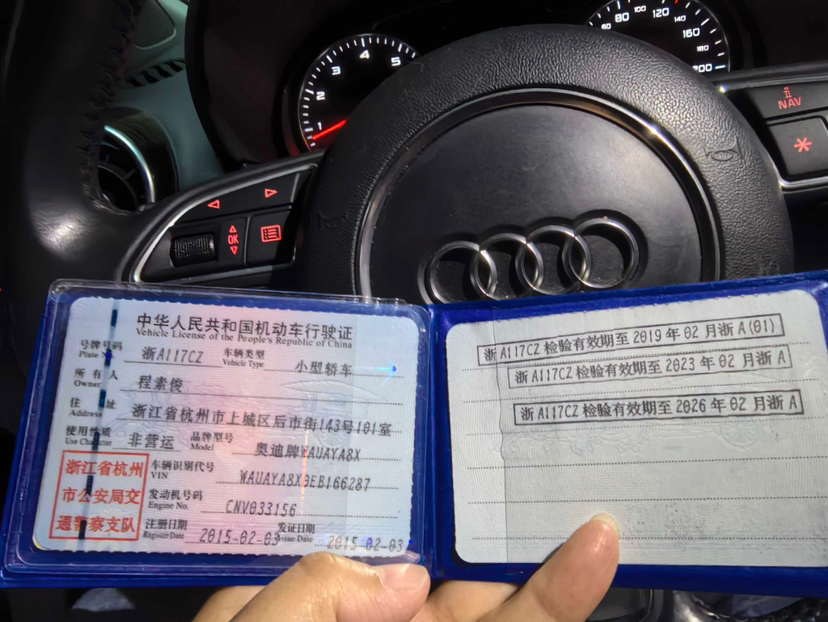 1 2 3 4 5
60 80 100 120 140 160 180 200
NAV
OK
中华人民共和国机动车行驶证
Vehicle License of the People's Republic of China
号牌号码 浙A117CZ 车辆类型 小型轿车
Plate N Vehicle Type
所有人 程素俊
Owner
住址 浙江省杭州市上城区后市街143号101室
Address
使用性质 非营运 品牌型号 奥迪牌WAUAYA8X
Use Character Model
浙江省杭州
市公安局交
通警察支队
车辆识别代号
VIN WAUAYA8X9EB166287
发动机号码
Engine No. CNV033156
注册日期 2015-02-03 发证日期 2015-02-03
Register Date Issue Date
浙A117CZ 检验有效期至2019年02月浙A(01)
浙A117CZ 检验有效期至2023年02月浙A
浙A117CZ 检验有效期至2026年02月浙A